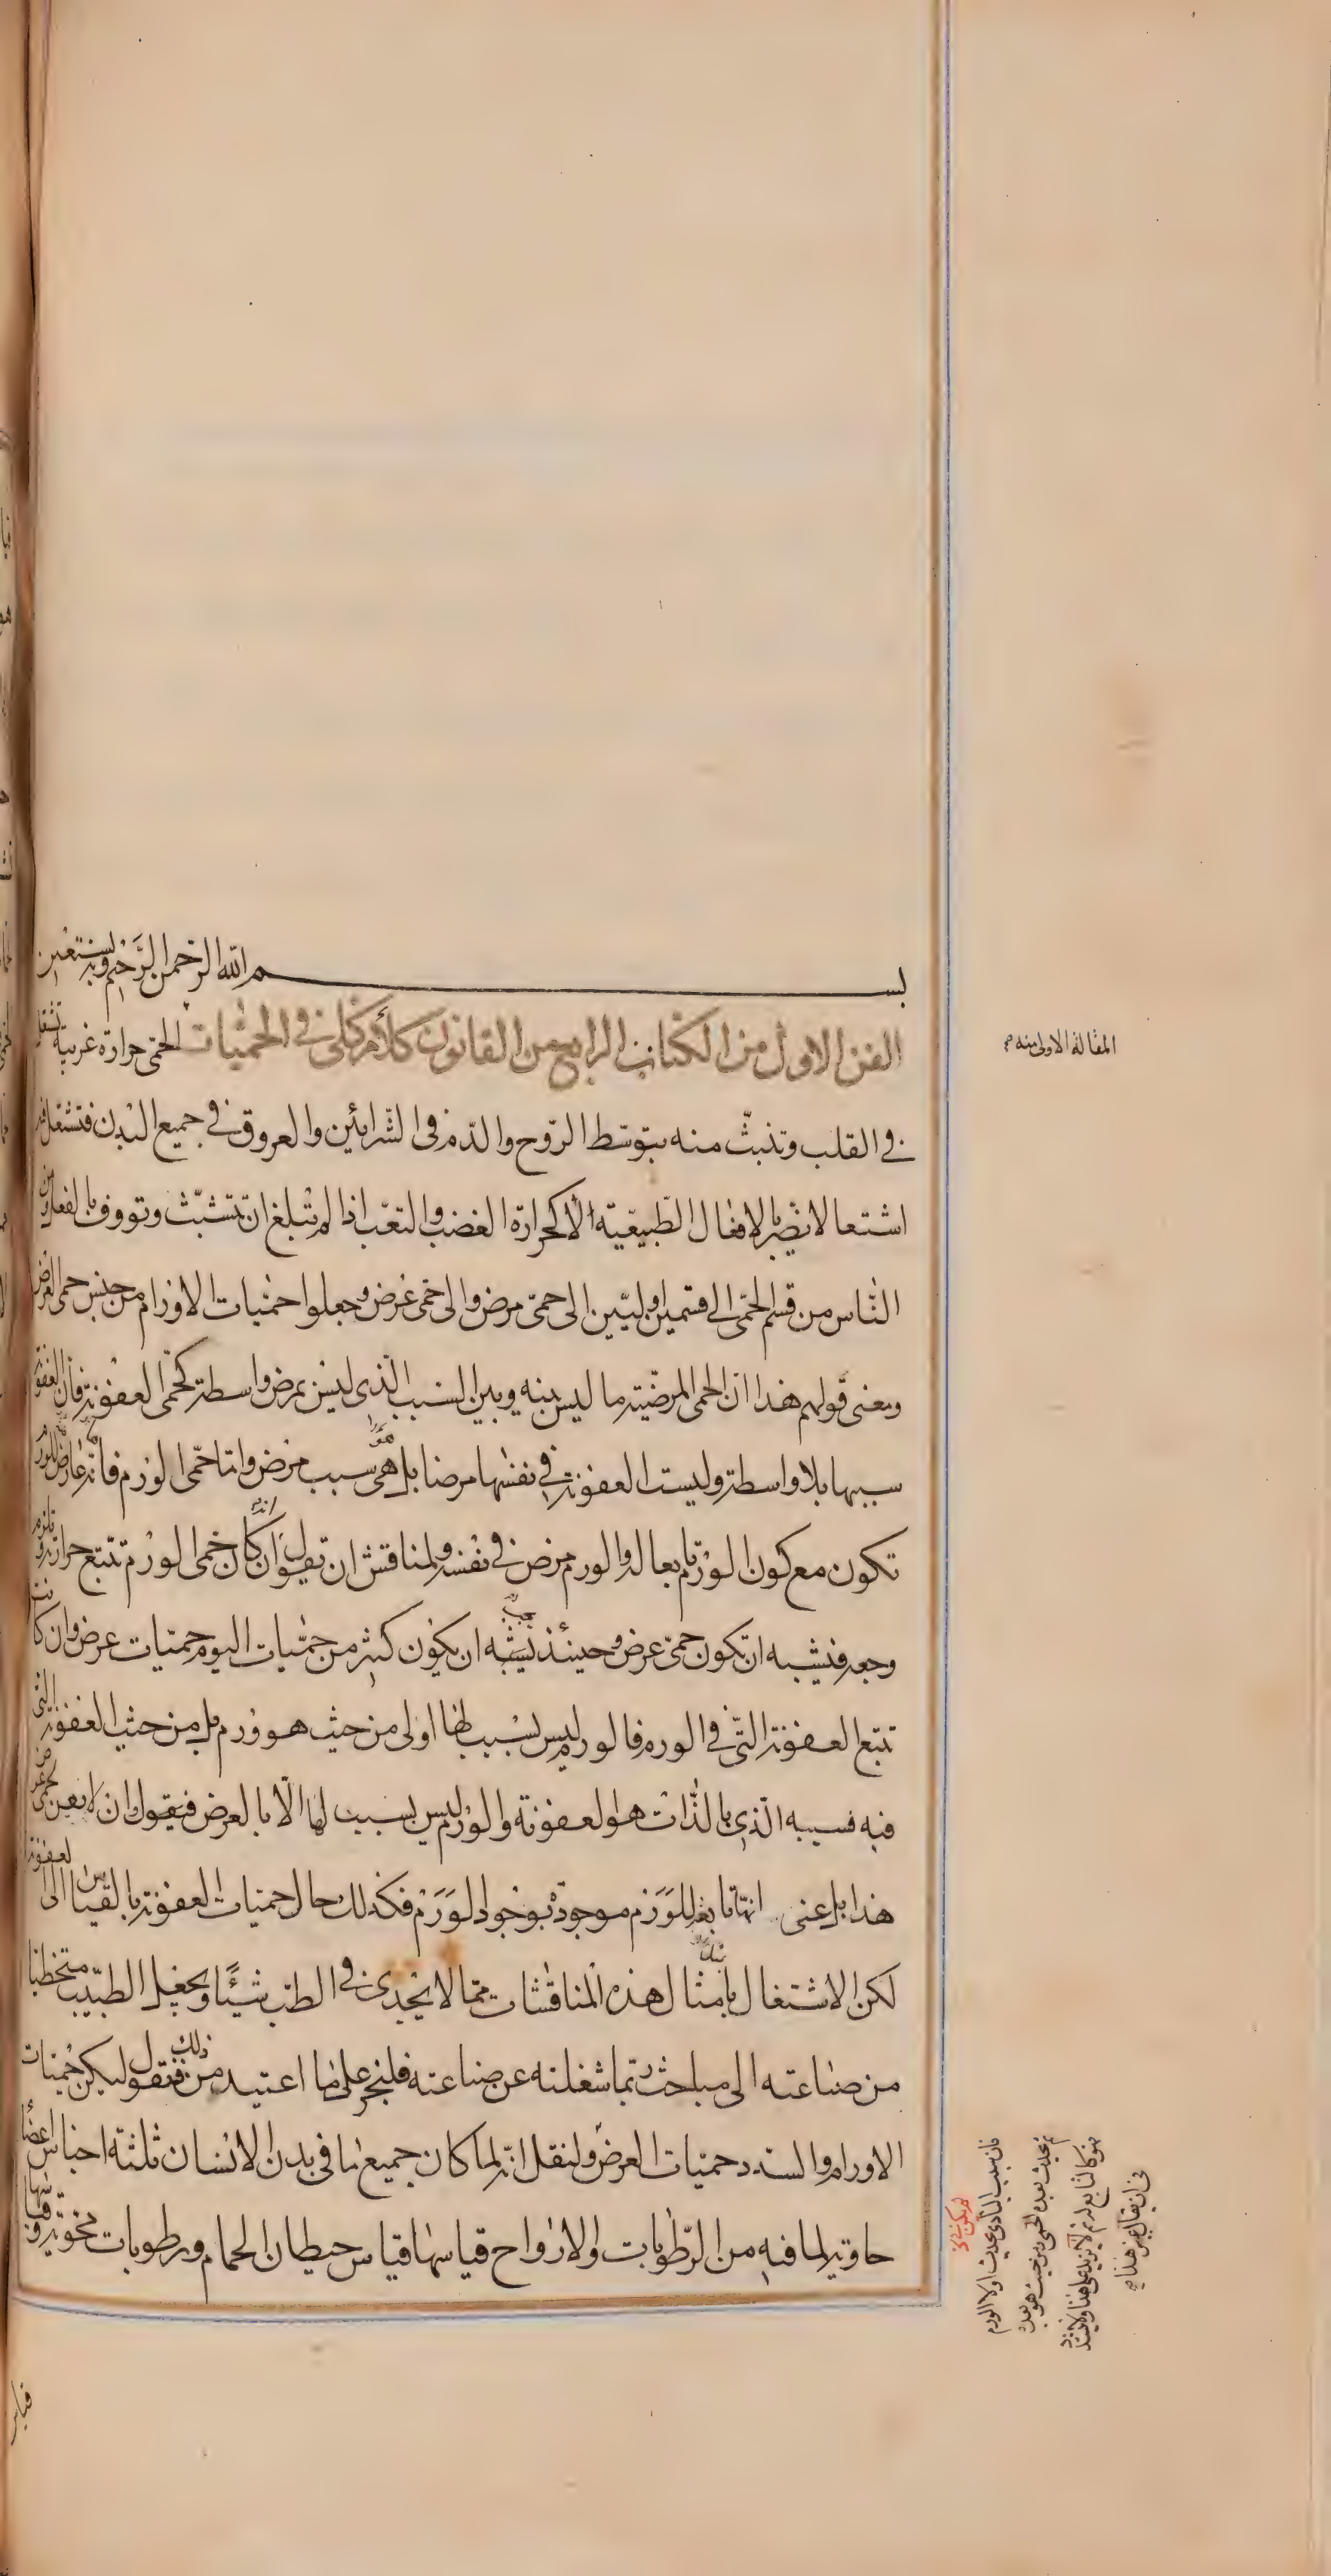 بسم الله الرحمن الرحيم وبه نستعين
الفن الاول من الكتاب الرابع من القانون كلام كلى فى الحميات الحمى حرارة غريبة تشتعل
المقالة الاولى منه
فى القلب وتنبثّ منه بتوسّط الروح والدم فى الشرائين والعروق فى جميع البدن فتشتعل فيه
اشتعالا لا يضر بالافعال الطبيعية لا كحرارة الغضب والتعب اذا لم تبلغ ان تتشبث وتووف بالفعل ومن
الناس من قسم الحمى الى قسمين اوليين الى حمى مرض والى حمى عرض وجعلوا حميات الاورام من جنس حمى العرض
ومعنى قولهم هذا ان الحمى المرضية ما ليس بينه وبين السبب الذى ليس بمرض واسطة كحمى العفونة فان العفونة
سببها بلا واسطة وليست العفونة فى نفسها مرضا بل هى سبب مرض واما حمى الورم فانه عارض للورم
تكون مع كون الورم تابعا له والورم مرض فى نفسه ولمناقش ان يقول انه ان كان حمى الورم تتبع حرارته تلزم
وجعه فيشبه ان تكون حمى عرض وحينئذ يشبه ان يكون كثير من حميات اليوم حميات عرض وان كانت
تتبع العفونة التى فى الورم فالورم ليس بسبب لها اولى من حيث هو ورم بل من حيث العفونة التى
فيه فسببه الذى بالذات هو العفونة والورم ليس بسبب لها الا بالعرض فيقول ان لا يعن حمى عرض
هذا بل عنى انها تابعة للورم موجودة بوجود الورم فكذلك حال حميات العفونة بالقياس الى العفونة
لكن الاشتغال بامثال هذه المناقشات مما لا يجدى فى الطب شيئا ويجعل الطبيب متخطيا
من صناعته الى مباحث ربما شغلته عن صناعته فلنجر على ما اعتيد من ذلك فنقول ليكن حميات
الاورام والسدد حميات العرض ولنقل انه لما كان جميع ما فى بدن الانسان ثلثة اجناس اعضاء
حاوية لما فيه من الرطوبات والارواح قياسها قياس حيطان الحمام ورطوبات محوية قياسها
قياس